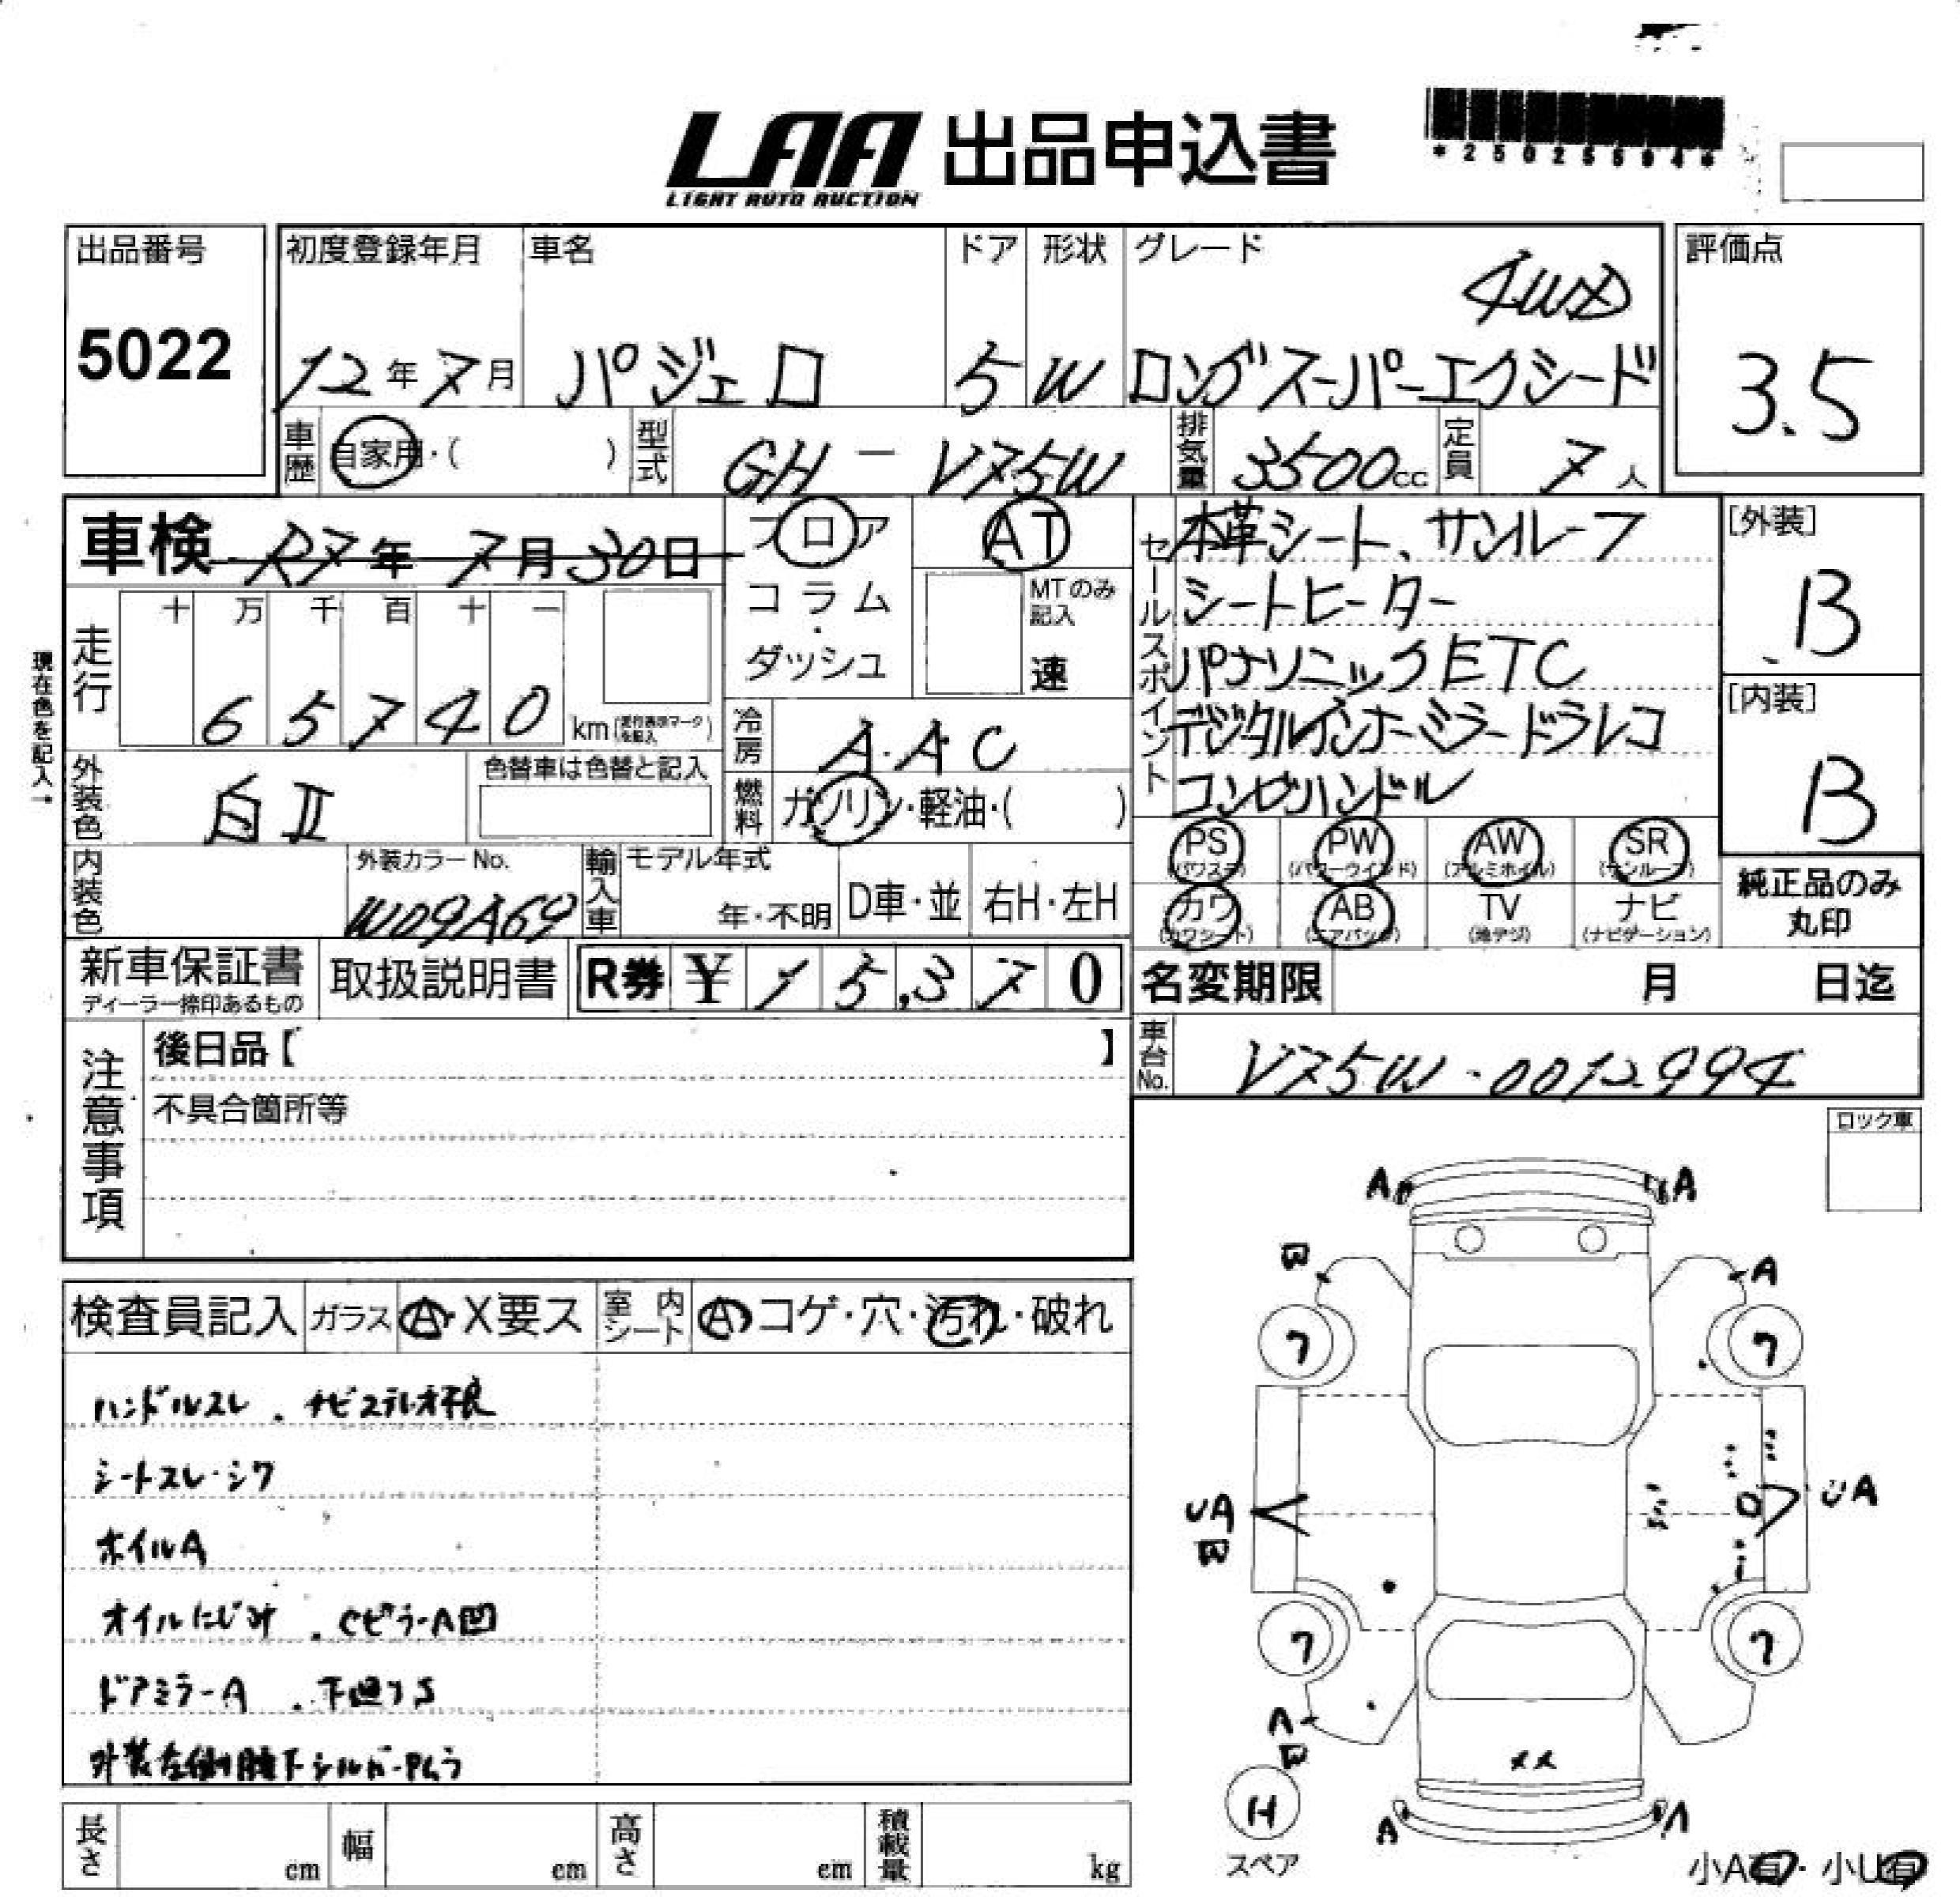 LAA 出品申込書
LIGHT AUTO AUCTION
出品番号 初度登録年月 車名 ドア 形状 グレード 評価点
4WD
5022 12年7月 パジェロ 5 W ロングスーパーエクシード 3.5
車歴 自家用・( ) 型式 GH-V75W 排気量 3500cc 定員 7人
車検 R7年7月30日 フロア AT
コラム・ダッシュ MTのみ記入 速
セールスポイント
本革シート、サンルーフ
シートヒーター
パナソニックETC
デジタルインナーミラードラレコ
コンビハンドル
[外装] B
[内装] B
現在色を記入→
走行 十 万 千 百 十 一
65740 km (走行表示マークを記入)
冷房 A.AC
外装色 白II 色替車は色替と記入
燃料 ガソリン・軽油・( )
PS (パワステ) PW (パワーウインド) AW (アルミホイル) SR (サンルーフ)
カワ (カワシート) AB (エアバッグ) TV (地デジ) ナビ (ナビゲーション)
純正品のみ丸印
内装色 外装カラーNo. W09A69 輸入車 モデル年式 年・不明 D車・並 右H・左H
新車保証書 ディーラー捺印あるもの 取扱説明書 R券 ¥15,370
名変期限 月 日迄
車台No. V75W-0012994
注意事項
後日品【 】
不具合箇所等
ロック車
検査員記入 ガラス A・X要ス 室内シート A コゲ・穴・汚れ・破れ
ハンドルスレ . ナビステレオ不良
シートスレ・シワ
ホイルA
オイルにじみ . CピラーA凹
ドアミラーA . 下廻りS
外装左側膝下シルバーPムラ
A A
A
ワ ワ
UA UA
ワ ワ
A
XX
H
スペア
A A
小A有・小U有
長さ cm 幅 cm 高さ cm 積載量 kg